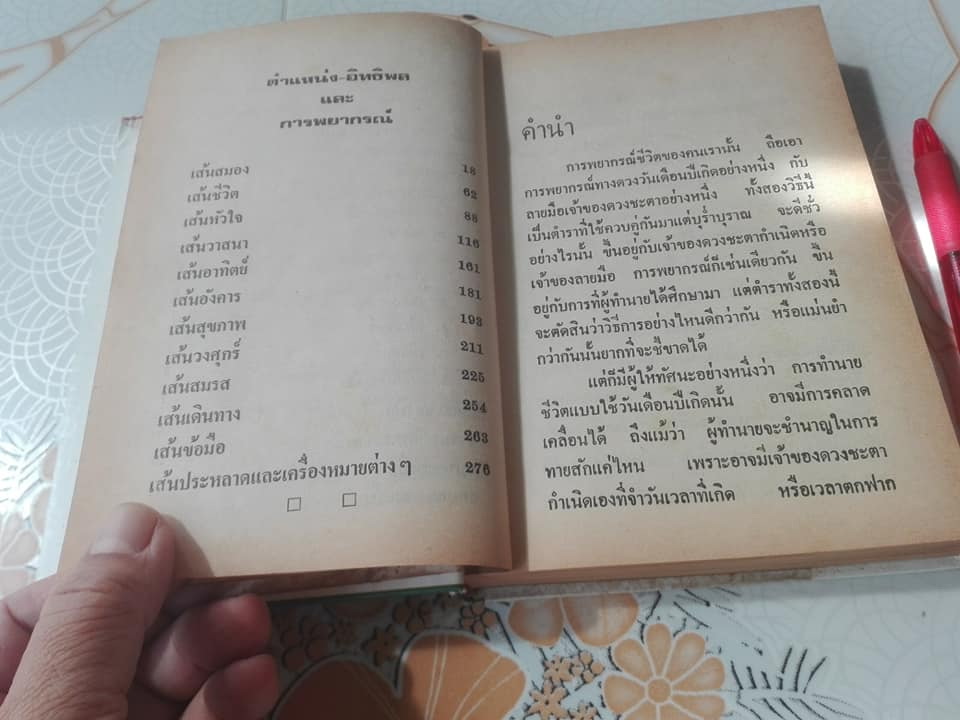 ตำแหน่ง-อิทธิพล
และ
การพยากรณ์
เส้นสมอง 18
เส้นชีวิต 62
เส้นหัวใจ 88
เส้นวาสนา 116
เส้นอาทิตย์ 161
เส้นอังคาร 181
เส้นสุขภาพ 193
เส้นวงศุกร์ 211
เส้นสมรส 225
เส้นเดินทาง 254
เส้นข้อมือ 263
เส้นประหลาดและเครื่องหมายต่าง ๆ 276
คำนำ
การพยากรณ์ชีวิตของคนเรานั้น ถือเอา
การพยากรณ์ทางดวงวันเดือนปีเกิดอย่างหนึ่ง กับ
ลายมือเจ้าของดวงชะตาอย่างหนึ่ง ทั้งสองวิธีนี้
เป็นตำราที่ใช้ควบคู่กันมาแต่บุร่ำบุราณ จะดีชั่ว
อย่างไรนั้น ขึ้นอยู่กับเจ้าของดวงชะตากำเนิดหรือ
เจ้าของลายมือ การพยากรณ์ก็เช่นเดียวกัน ขึ้น
อยู่กับการที่ผู้ทำนายได้ศึกษามา แต่ตำราทั้งสองนี้
จะตัดสินว่าวิธีการอย่างไหนดีกว่ากัน หรือแม่นยำ
กว่ากันนั้นยากที่จะชี้ขาดได้
แต่ก็มีผู้ให้ทัศนะอย่างหนึ่งว่า การทำนาย
ชีวิตแบบใช้วันเดือนปีเกิดนั้น อาจมีการคลาด
เคลื่อนได้ ถึงแม้ว่า ผู้ทำนายจะชำนาญในการ
ทายสักแค่ไหน เพราะอาจมีเจ้าของดวงชะตา
กำเนิดเองที่จำวันเวลาที่เกิด หรือเวลาตกฟาก